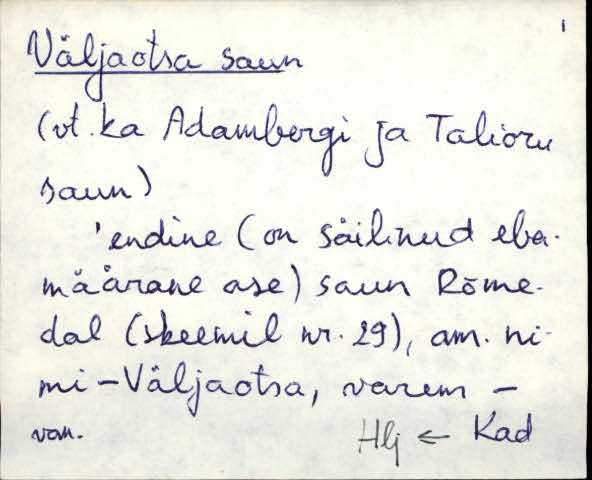 1
Väljaotsa saun
(vt. ka Adambergi ja Talioru
saun)
'endine (on säilinud eba-
määrane ase) saun Rõme-
dal (skeemil nr. 29), am. ni-
mi - Väljaotsa, varem -
van.
Hlj ← Kad